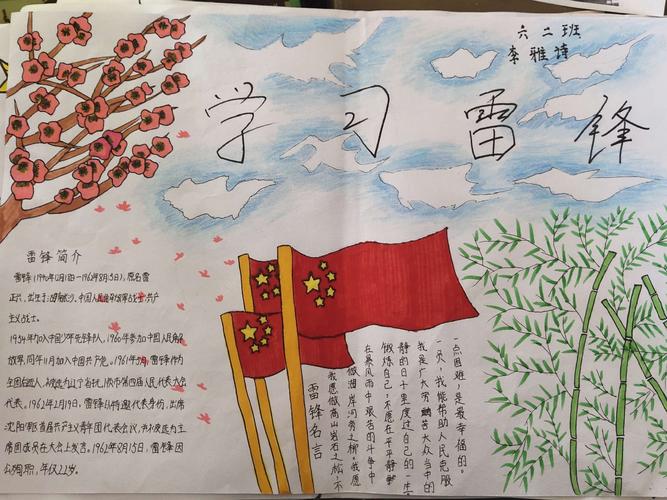 六二班
李雅诗
学习雷锋
雷锋简介
雷锋(1940年12月18日—1962年8月15日),原名雷
正兴,出生于湖南长沙,中国人民解放军战士,共产
主义战士。
1954年加入中国少年先锋队,1960年参加中国人民解
放军,同年11月加入中国共产党。1961年5月,雷锋作为
全团候选人,被选为辽宁省抚顺市第四届人民代表大会
代表。1962年2月19日,雷锋以特邀代表身份,出席
沈阳军区首届共产主义青年团代表会议,并被选为主
席团成员在大会上发言。1962年8月15日,雷锋因
公殉职,年仅22岁。
雷锋名言
我愿做高山岩石之松,不
做湖岸河旁之柳。我愿
在暴风雨中艰苦的斗争中
锻炼自己,不愿在平平静
静的日子里度过自己的一生
我是广大劳苦大众当中的
一员,我能帮助人民克服
一点困难,是最幸福的。